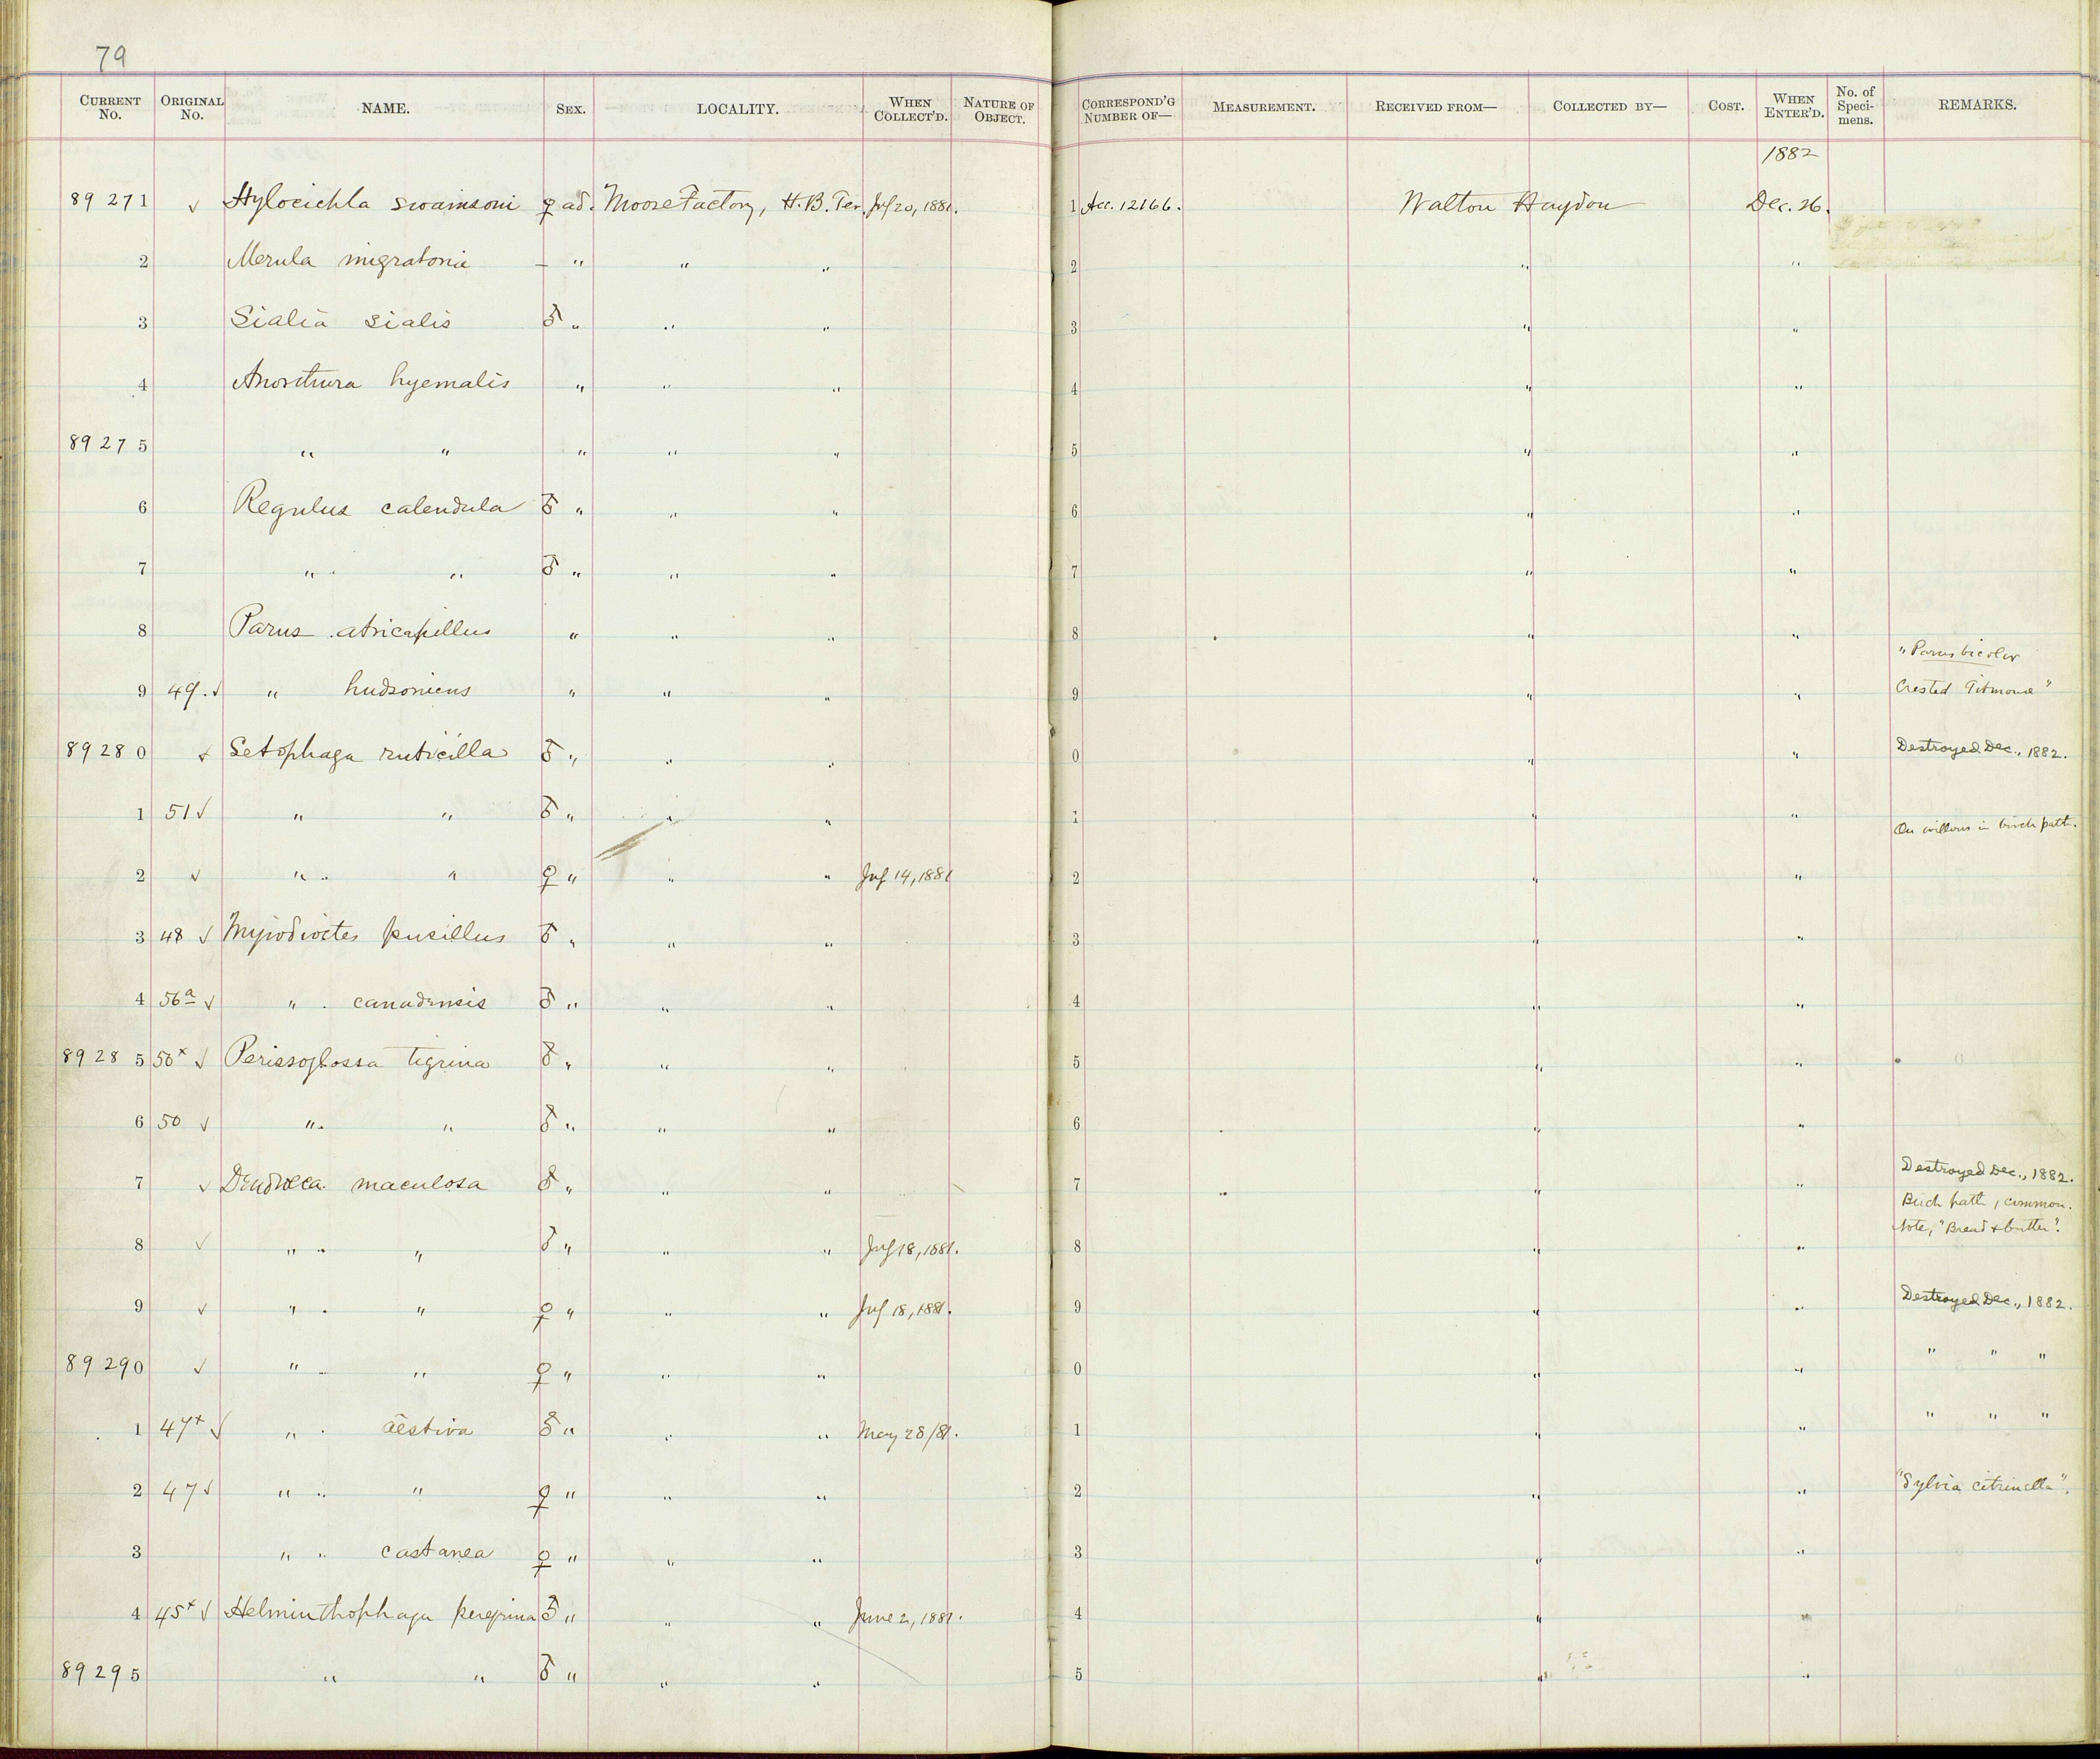 79
CURRENT No. ORIGINAL No. NAME. SEX. LOCALITY. WHEN COLLECT'D. NATURE OF OBJECT. CORRESPOND'G NUMBER OF— MEASUREMENT. RECEIVED FROM— COLLECTED BY— COST. WHEN ENTER'D. No. of Speci-mens. REMARKS.
1882
89 271 ✓ Hylocichla swainsoni ♀ ad. Moose Factory, H.B. Ter. July 20, 1881. 1 Acc. 12166. Walton Haydon Dec. 26.
2 Merula migratoria — " " " 2 " "
3 Sialia sialis ♂ " " " 3 " "
4 Anorthura hyemalis " " " 4 " "
8927 5 " " " " " 5 " "
6 Regulus calendula ♂ " " " 6 " "
7 " " ♂ " " " 7 " "
8 Parus atricapillus " " " 8 " "
"Parus bicolor
9 49. ✓ " hudsonicus " " " 9 " " Crested Titmouse"
8928 0 ✓ Setophaga ruticilla ♂ " " " 0 " " Destroyed Dec., 1882.
1 51 ✓ " " ♂ " " " 1 " " On willows in birch path.
2 ✓ " " ♀ " " " July 14, 1881 2 " "
3 48 ✓ Myiodioctes pusillus ♂ " " " 3 " "
4 56a ✓ " canadensis ♂ " " " 4 " "
8928 5 50x ✓ Perissoglossa tigrina ♂ " " " 5 " "
6 50 ✓ " " ♂ " " " 6 " "
7 ✓ Dendrœca maculosa ♂ " " " 7 " " Destroyed Dec., 1882.
Birch path, common.
Note, "Bread & butter".
8 ✓ " " ♂ " " " July 18, 1881. 8 " "
9 ✓ " " ♀ " " " July 18, 1881. 9 " " Destroyed Dec., 1882.
89290 ✓ " " ♀ " " " 0 " " " " "
1 47x ✓ " æstiva ♂ " " " May 28/81. 1 " " " " "
2 47 ✓ " " ♀ " " " 2 " " "Sylvia citrinella".
3 " castanea ♀ " " " 3 " "
4 45x ✓ Helminthophaga peregrina ♂ " " " June 2, 1881. 4 " "
8929 5 " " ♂ " " " 5 " "